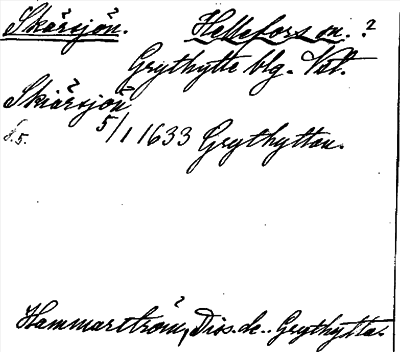 Skärsjön. Hellefors sn. ?
Grythytte blg. Vstl.
Skiärsjön
5/1 1633 Grythyttan.
Hammarström, Dis. de.. Grythytta.